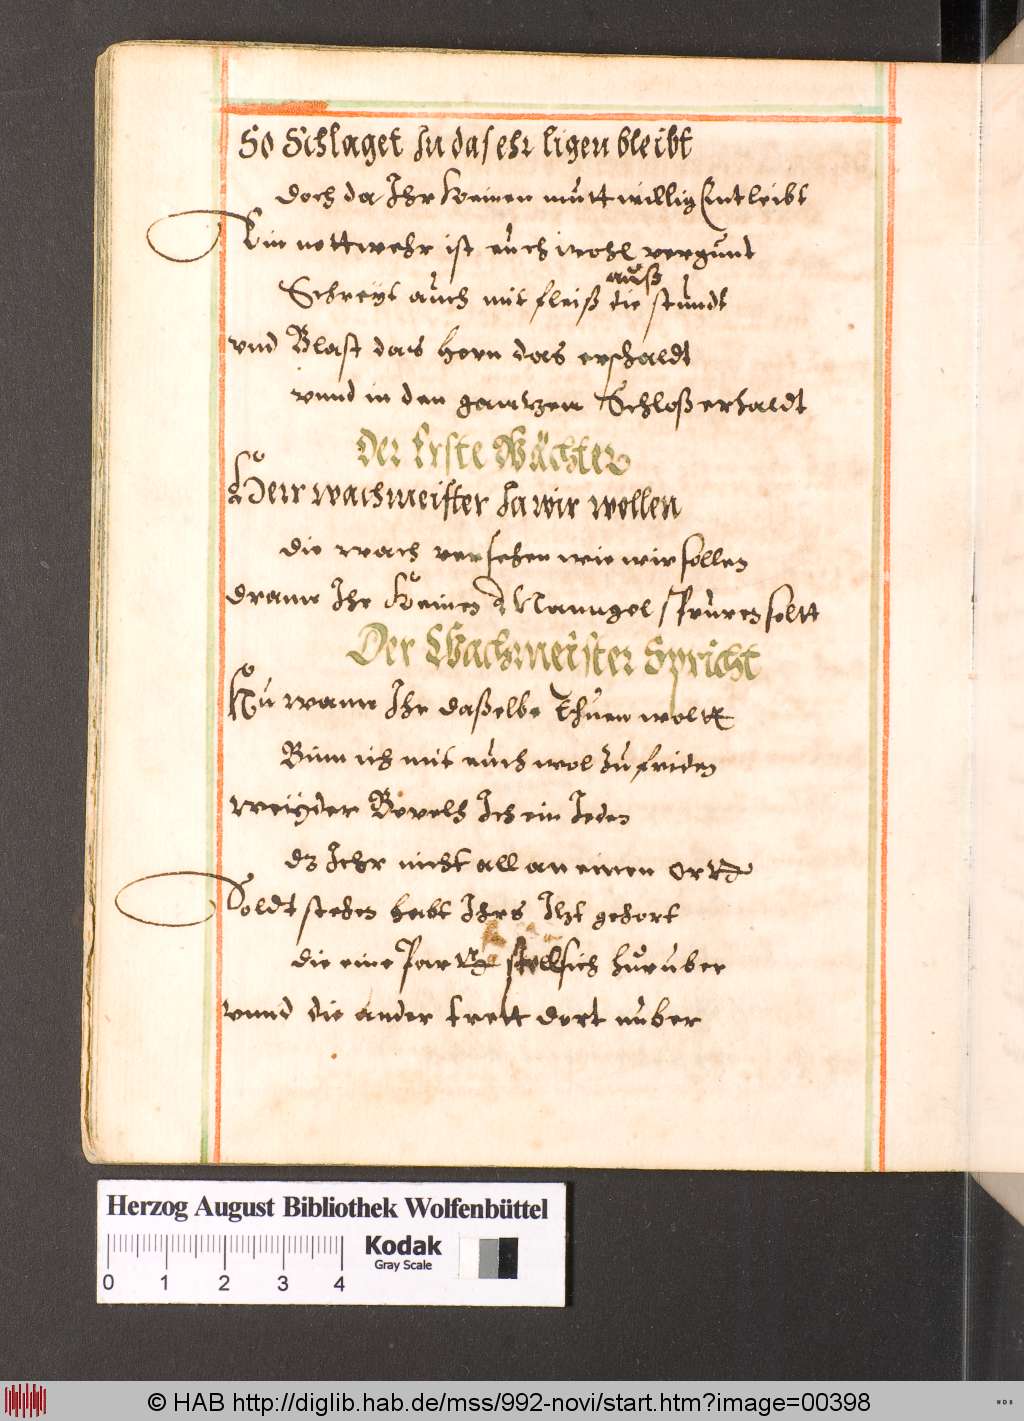 So Schlaget In das ehr ligen bleibt
doch da Ihr Keinen muttwillig Entleibt
Ein nottwehr ist auch wohl vergunt
auß
Schreyt auch mit fleiß die stundt
vnd Blast das horn das erschaldt
vnnd in den gantzen Schloß erhaldt
Der Erste Wächter
Herr wachmeister Ja wir wollen
die wach versehen wie wir sollen
drann Ihr Keinen Manngel spüren soltt
Der Wachmeister Spricht
Nu wann Ihr daßelbe thuen woltt
Binn ich mit euch wol zu friden
weyder Bevelh Ich ein Jeden
dz Ichr nicht all an einen ortt
Soldt stehen habt Ihrs Itzt gehort
die eine Partt stell sich huruber
vnnd die ander trett dort nuber
Herzog August Bibliothek Wolfenbüttel
Kodak
Gray Scale
0 1 2 3 4
© HAB http://diglib.hab.de/mss/992-novi/start.htm?image=00398